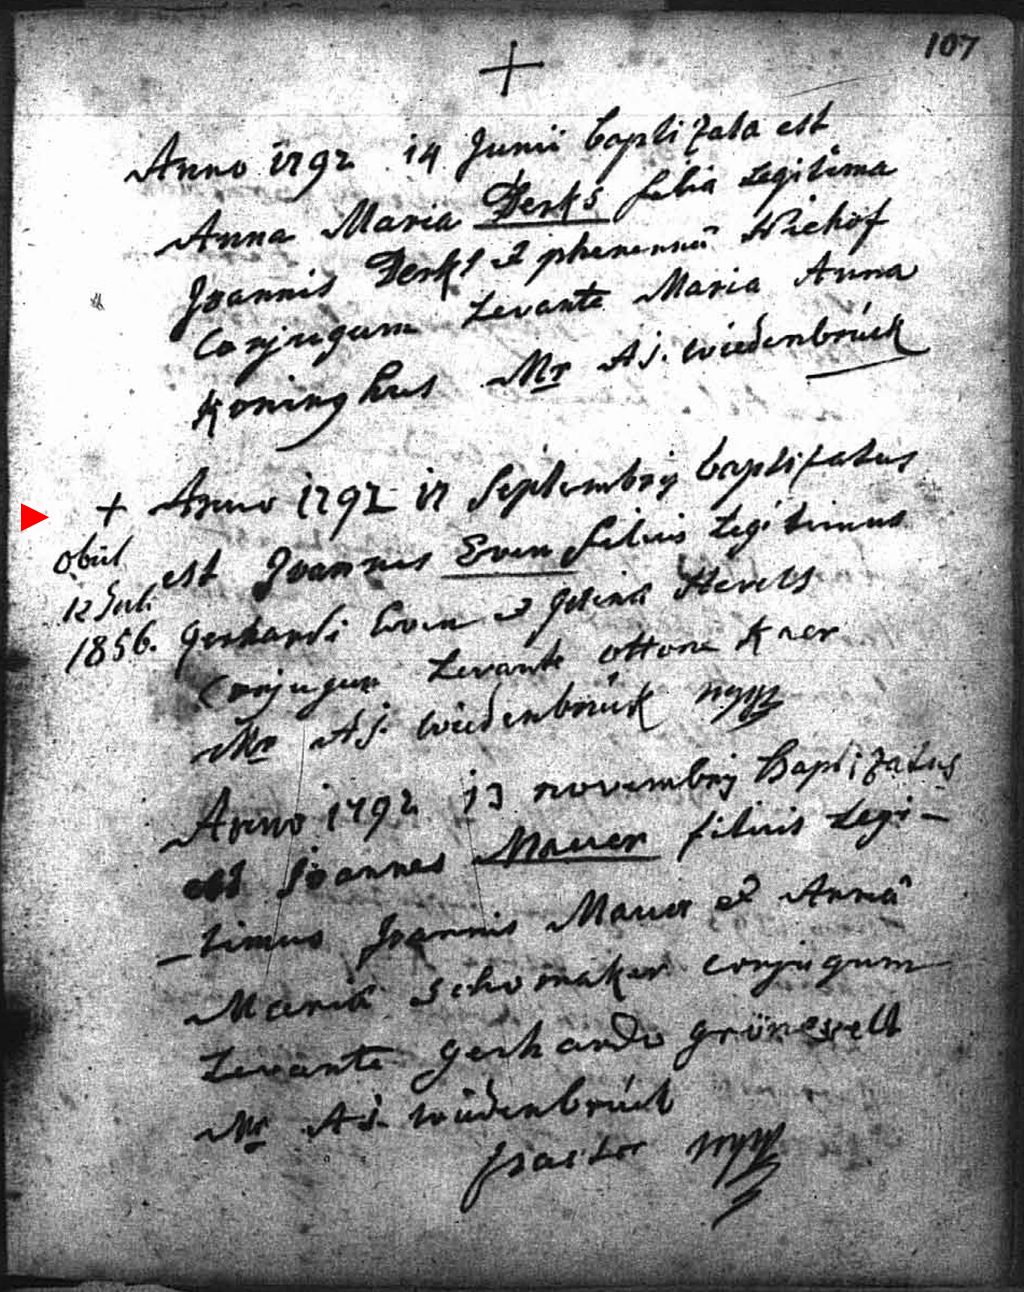 107
Anno 1792 14 Junii baptizata est
Anna Maria Derks filia Legitima
Joannis Derks et Wichof
Conjugum Levante Maria Anna
Koninghus Mr A.J. Wiedenbrück
+ Anno 1792 17 Septembrij baptizatus
obiit
est Joannes Even filius Legitimus
12 Juli
1856. Gerhardi Even et Gesina
Conjugum Levante ottone Kaer
Mr A.J. Wiedenbrück
Anno 1792 13 novembrij Baptizatus
est Joannes Maurer filius Legi-
-timus Joannis Maurer et Annâ
Mariâ Schomaker conjugum
Levante Gerhardo
Mr A.J. Wiedenbrück
pastor